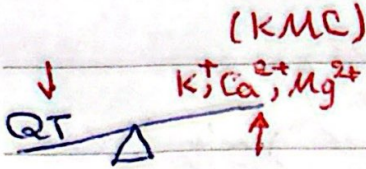 (KMC)
↓ K⁺, Ca²⁺, Mg²⁺
QT ↑